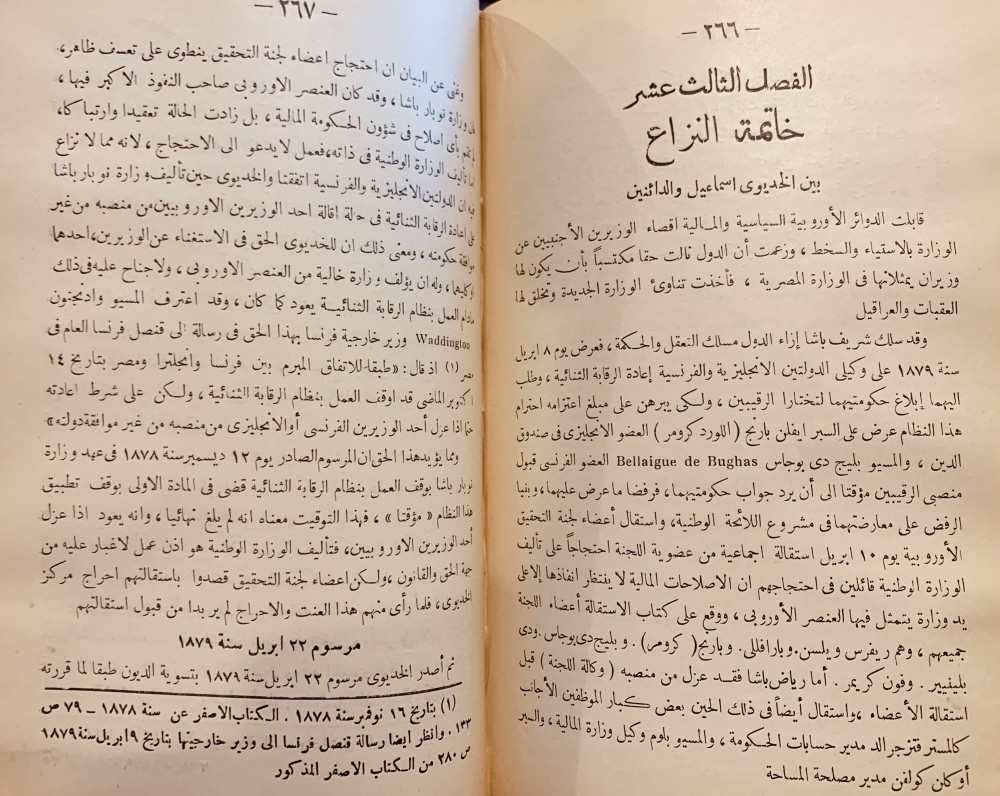 — ٢٦٦ —
الفصل الثالث عشر
خاتمة النزاع
بين الخديوى اسماعيل والدائنين
قابلت الدوائر الأوروبية السياسية والمالية اقصاء الوزيرين الأجنبيين عن
الوزارة بالاستياء والسخط ، وزعمت أن الدول نالت حقا مكتسباً بأن يكون لها
وزيران يمثلانها فى الوزارة المصرية ، فأخذت تناوئ الوزارة الجديدة وتخلق لها
العقبات والعراقيل
وقد سلك شريف باشا إزاء الدول مسلك التعقل والحكمة ، فعرض يوم ٨ ابريل
سنة ١٨٧٩ على وكيلى الدولتين الانجليزية والفرنسية إعادة الرقابة الثنائية ، وطلب
اليهما إبلاغ حكومتيهما لتختارا الرقيبين ، ولكى يبرهن على مبلغ اعتزامه احترام
هذا النظام عرض على السير ايفلن بارنج ( اللورد كرومر ) العضو الانجليزى فى صندوق
الدين ، والمسيو بليج دى بوجاس Bellaigue de Bughas العضو الفرنسى قبول
منصبى الرقيبين مؤقتا الى أن يرد جواب حكومتيهما ، فرفضا ما عرض عليهما ، وبنيا
الرفض على معارضتهما فى مشروع اللائحة الوطنية، واستقال أعضاء لجنة التحقيق
الأوروبية يوم ١٠ ابريل استقالة اجماعية من عضوية اللجنة احتجاجاً على تأليف
الوزارة الوطنية قائلين فى احتجاجهم ان الاصلاحات المالية لا ينتظر انفاذها إلا على
يد وزارة يتمثل فيها العنصر الأوروبى ، ووقع على كتاب الاستقالة أعضاء اللجنة
جميعهم ، وهم ريفرس ويلسن . وبارافللى . وبارنج ( كرومر ) . وبليج دى بوجاس . ودى
بلينيير . وفون كريمر . أما رياض باشا فقد عزل من منصبه ( وكالة اللجنة ) قبل
استقالة الأعضاء ، واستقال أيضاً فى ذلك الحين بعض كبار الموظفين الأجانب
كالمستر فتزجرالد مدير حسابات الحكومة ، والمسيو بلوم وكيل وزارة المالية ، والسير
أوكلن كولفن مدير مصلحة المساحة
— ٢٦٧ —
وغنى عن البيان ان احتجاج اعضاء لجنة التحقيق ينطوى على تعسف ظاهر،
فان وزارة نوبار باشا ، وقد كان العنصر الاوروبى صاحب النفوذ الاكبر فيها ،
لم تقم بأى اصلاح فى شؤون الحكومة المالية ، بل زادت الحالة تعقيدا وارتباكا،
اما تأليف الوزارة الوطنية فى ذاته، فعمل لا يدعو الى الاحتجاج ، لانه مما لا نزاع
فيه ان الدولتين الانجليزية والفرنسية اتفقتا والخديوى حين تأليف وزارة نوبار باشا
على اعادة الرقابة الثنائية فى حالة اقالة احد الوزيرين الاوروبيين من منصبه من غير
موافقة حكومته ، ومعنى ذلك ان للخديوى الحق فى الاستغناء عن الوزيرين، احدهما
او كليهما ، وله ان يؤلف وزارة خالية من العنصر الاوروبى ، ولا جناح عليه فى ذلك
مادام العمل بنظام الرقابة الثنائية يعود كما كان ، وقد اعترف المسيو وادنجتون
Waddington وزير خارجية فرنسا بهذا الحق فى رسالة الى قنصل فرنسا العام فى
مصر (١) اذ قال : « طبقا للاتفاق المبرم بين فرنسا وانجلترا ومصر بتاريخ ١٤
اكتوبر الماضى قد اوقف العمل بنظام الرقابة الثنائية ، ولكن على شرط اعادته
حتما اذا عزل أحد الوزيرين الفرنسى أو الانجليزى من منصبه من غير موافقة دولته »
ومما يؤيد هذا الحق ان المرسوم الصادر يوم ١٢ ديسمبر سنة ١٨٧٨ فى عهد وزارة
نوبار باشا بوقف العمل بنظام الرقابة الثنائية قضى فى المادة الاولى بوقف تطبيق
هذا النظام « مؤقتا » ، فهذا التوقيت معناه انه لم يلغ نهائيا ، وانه يعود اذا عزل
أحد الوزيرين الاوروبيين، فتأليف الوزارة الوطنية هو اذن عمل لا غبار عليه من
جهة الحق والقانون ، ولكن اعضاء لجنة التحقيق قصدوا باستقالتهم احراج مركز
الخديوى ، فلما رأى منهم هذا العنت والاحراج لم ير بدا من قبول استقالتهم
مرسوم ٢٢ ابريل سنة ١٨٧٩
ثم أصدر الخديوى مرسوم ٢٢ ابريل سنة ١٨٧٩ بتسوية الديون طبقا لما قررته
(١) بتاريخ ١٦ نوفمبر سنة ١٨٧٨ . الكتاب الاصفر عن سنة ١٨٧٨ – ٧٩ ص
١٣٣ . وانظر ايضا رسالة قنصل فرنسا الى وزير خارجيتها بتاريخ ٩ ابريل سنة ١٨٧٩
ص ٢٨٠ من الكتاب الاصفر المذكور